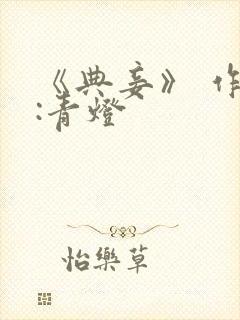 《典妾》 作
:青燈
怡樂草